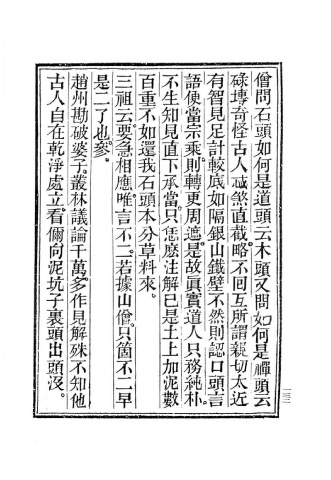 僧問石頭如何是道頭云木頭又問如何是禪頭云
碌塼奇怪古人
煞直截略不回互所謂親切太近
有智見足計較底如隔銀山鐵壁不然則認口頭言
語便當宗乘則轉更周遮是故真實道人只務純朴
不生知見直下承當只恁麽注解已是土上加泥數
百重不如還我石頭本分草料來
三祖云要急相應唯言不二若據山僧只箇不二早
是二了也參
趙州勘破婆子叢林議論千萬多作見解殊不知他
古人自在乾淨處立看儞向泥坑子裏頭出頭沒
二三